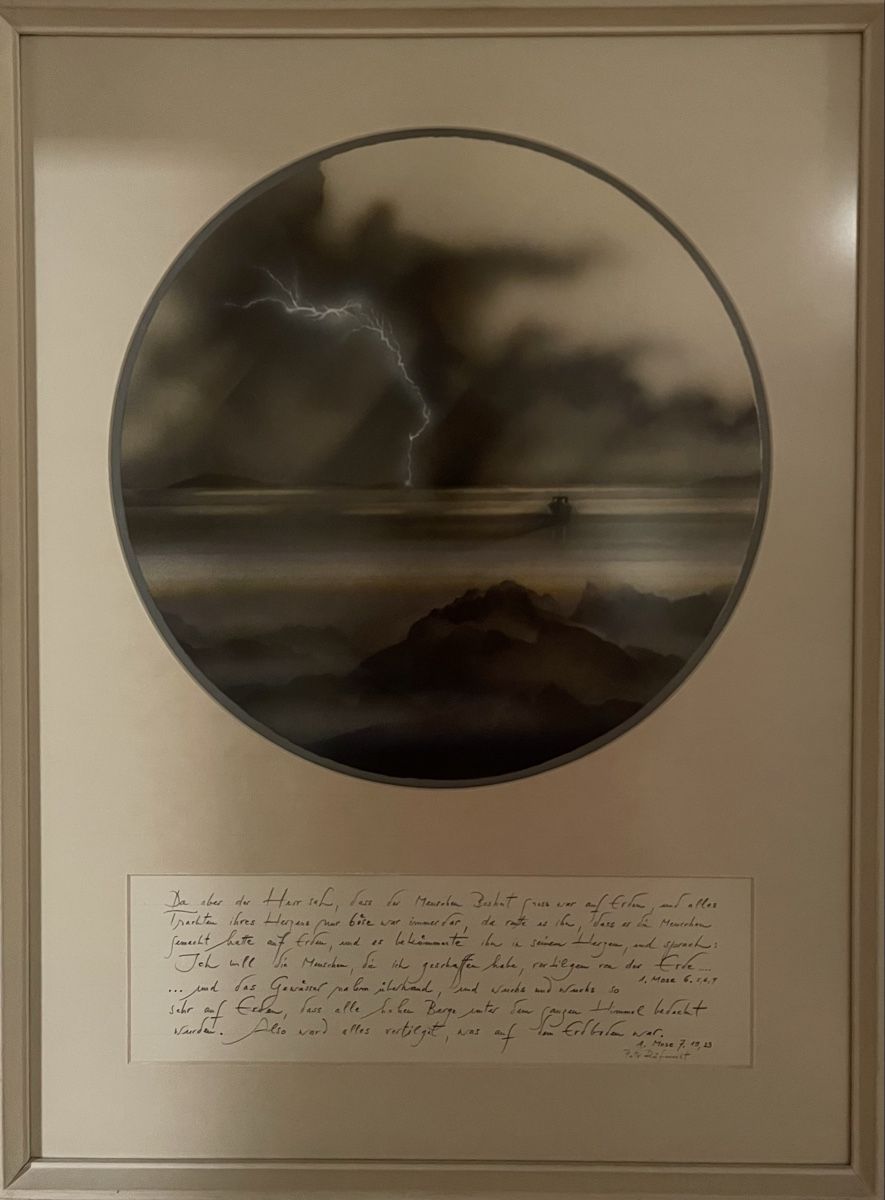 Da aber der Herr sah, dass der Menschen Bosheit gross war auf Erden, und alles
Trachten ihres Herzens nur böse war immerdar, da reute es ihn, dass er die Menschen
gemacht hatte auf Erden, und es bekümmerte ihn in seinem Herzen, und sprach:
Ich will die Menschen, die ich geschaffen habe, vertilgen von der Erde...
1. Mose 6. 5,6,7
... und das Gewässer nahm überhand, und wuchs und wuchs so
sehr auf Erden, dass alle hohen Berge unter dem ganzen Himmel bedeckt
wurden. Also ward alles vertilget, was auf dem Erdboden war.
1. Mose 7. 19, 23